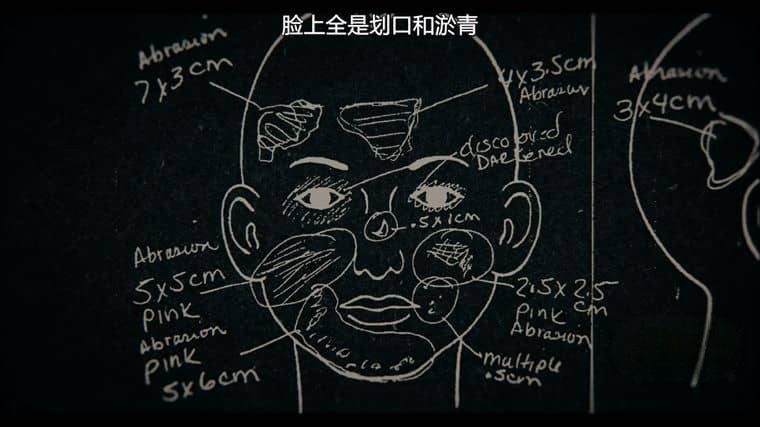 脸上全是划口和淤青
Abrasion
7x3cm
4x3.5cm
Abrasion
Abrasion
3x4cm
discolored
DArkened
.5x1cm
Abrasion
5x5cm
pink
Abrasion
pink
5x6cm
2.5x2.5
cm
pink
Abrasion
multiple
.5cm